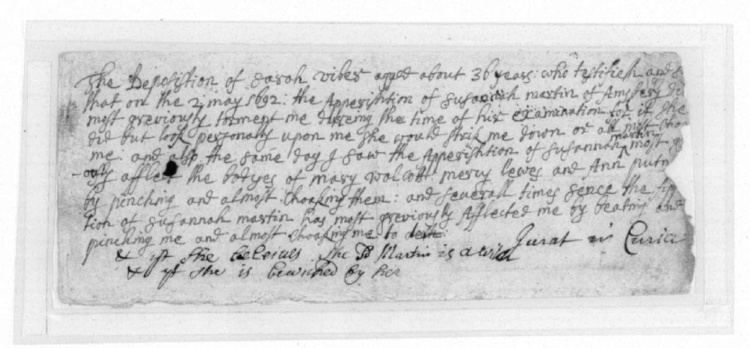 The Deposition of Sarah vibes aged about 36 years who testifieth and s
that on the 2 may 1692: the Apperishtion of Susannah martin of Amsbery did
most greviously torment me dureing the time of hir examination for if she
did but look personally upon me she would strik me down or all most choak
me: and also the same day I saw the Apperishtion of Susannah martin most gr
ously afflect the bodyes of mary walcott mercy lewes and Ann putn
by pinching and almost choaking them: and severall times sence the App
tion of Susannah martin has most greviously afflected me by beating and
pinching me and almost choaking me to death:
Jurat in Curia
& yt she beleives she Sd Martin is a witch
& yt she is bewiched by her